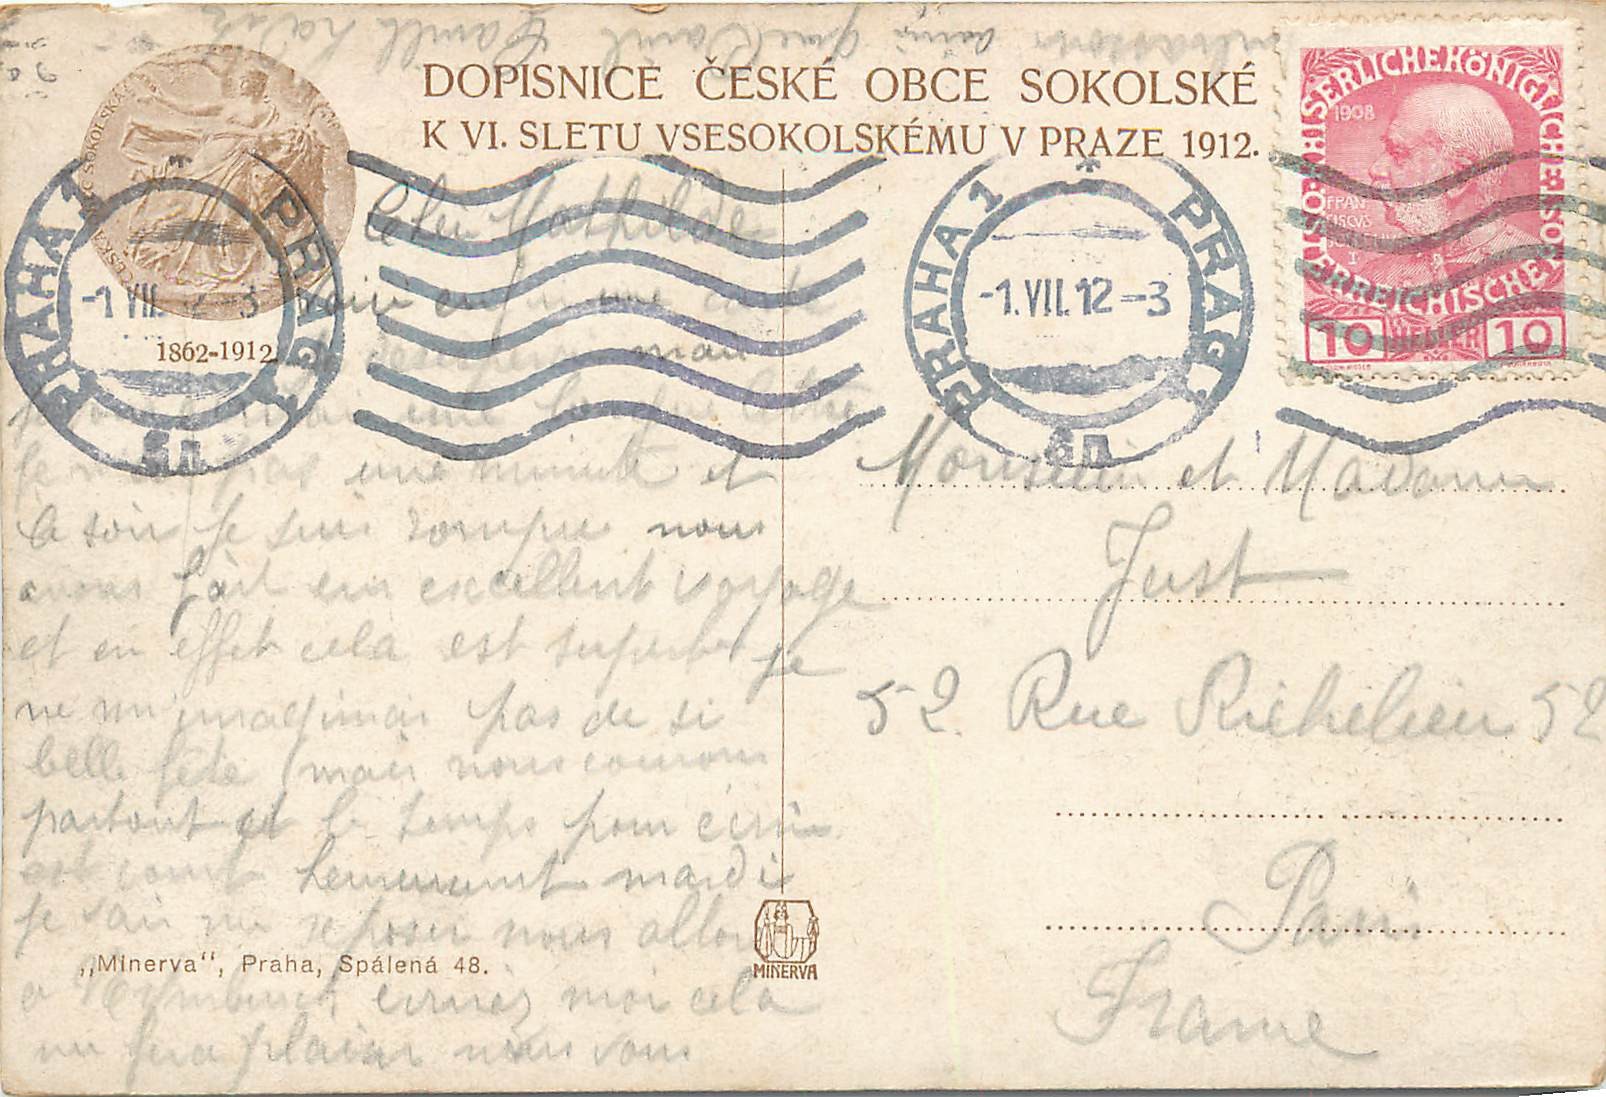 DOPISNICE ČESKÉ OBCE SOKOLSKÉ
K VI. SLETU VSESOKOLSKÉMU V PRAZE 1912.
1862-1912
PRAHA 1 PRAG 1
-1.VII.12-3
6a
PRAHA 1 PRAG 1
-1.VII.12-3
6a
KAISERLICHEKÖNIGLICHE
ÖSTERREICHISCHE
1908
FRAN
CISCVS
I
10 HELLER 10
Chère Mathilde
une carte
mais
une minute et
le soir je suis rompue nous
avons fait un excellent voyage
et en effet cela est superbe je
ne m'imaginais pas de si
belle fête mais nous courons
partout et le temps pour écrire
est court heureusement mardi
je vais me reposer nous allons
a écrivez moi cela
me fera plaisir nous vous
Monsieur et Madame
Just
52 Rue Richelieu 52
Paris
France
„Minerva“, Praha, Spálená 48.
MINERVA